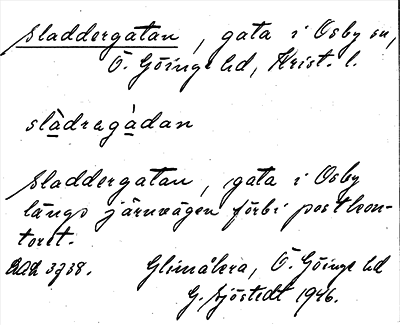 Sladdergatan, gata i Osby sn,
Ö. Göinge hd, Krist. l.
slàdragàdan
Sladdergatan, gata i Osby
längs järnvägen förbi postkon-
toret.
3738. Glimåkra, Ö. Göinge hd
G. Sjöstedt 1946.